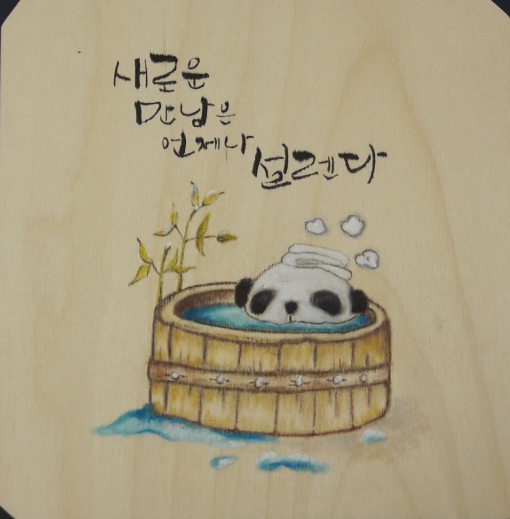 새로운
만남은
언제나
설렌다